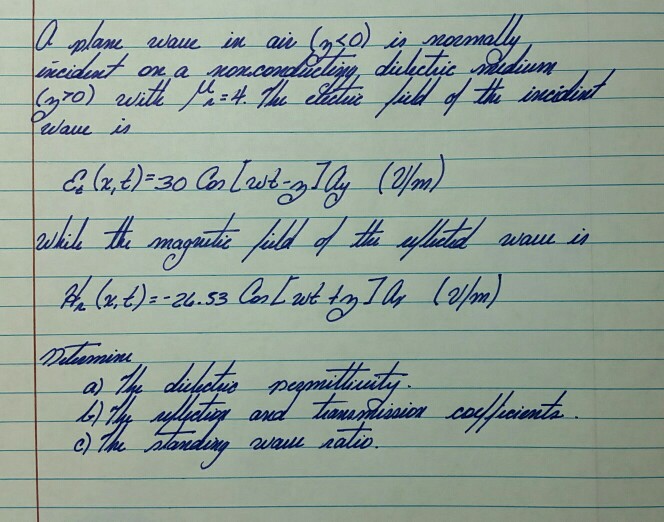 A plane wave in air (z<0) is normally
incident on a nonconducting dielectric medium
(z>0) with μr=4. The electric field of the incident
wave is
Ei (x,t)=30 Cos[wt-z]ay (V/m)
While the magnetic field of the reflected wave is
Hr (x,t)=-26.53 Cos[wt+z]ax (V/m)
Determine
a) The dielectric permittivity.
b) The reflection and transmission coefficients.
c) The standing wave ratio.